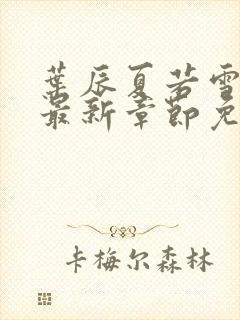 葉辰夏若雪
最新章節免
卡梅尔森林